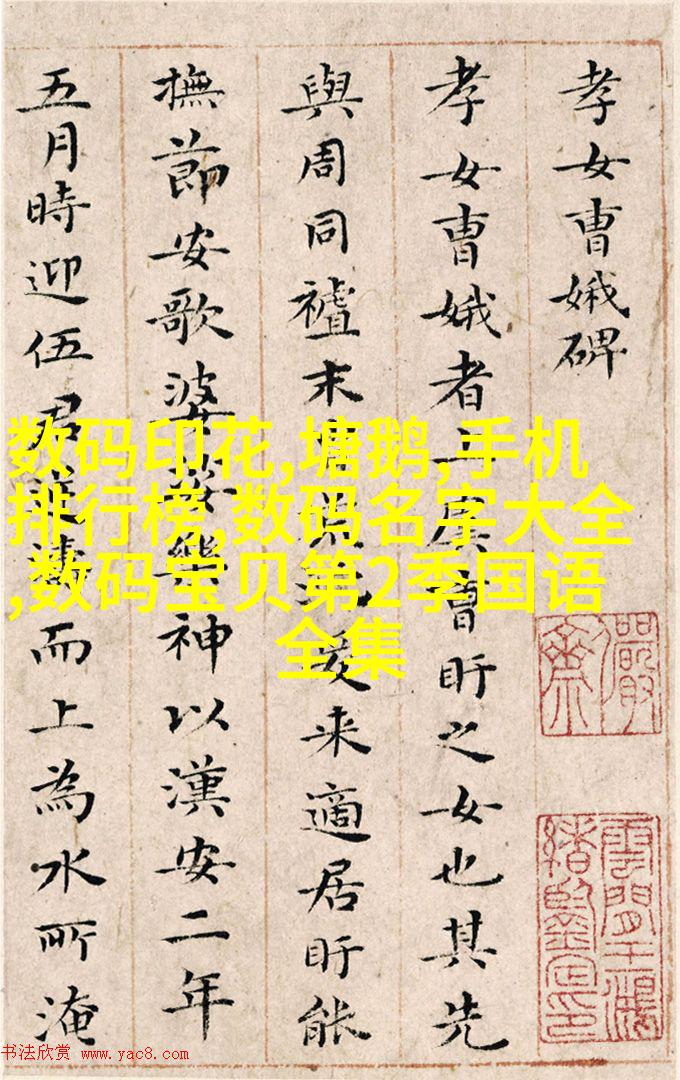 孝女曹娥碑
孝女曹娥者上虞曹盱之女也其先
與周同末爰来適居盱能
撫節安歌婆娑樂神以漢安二年
五月時迎伍君逆濤而上為水所淹
数码印花,塘鹅,手机
排行榜,数码名字大全
,数码宝贝第2季国语
全集
书法欣赏 www.yac8.com